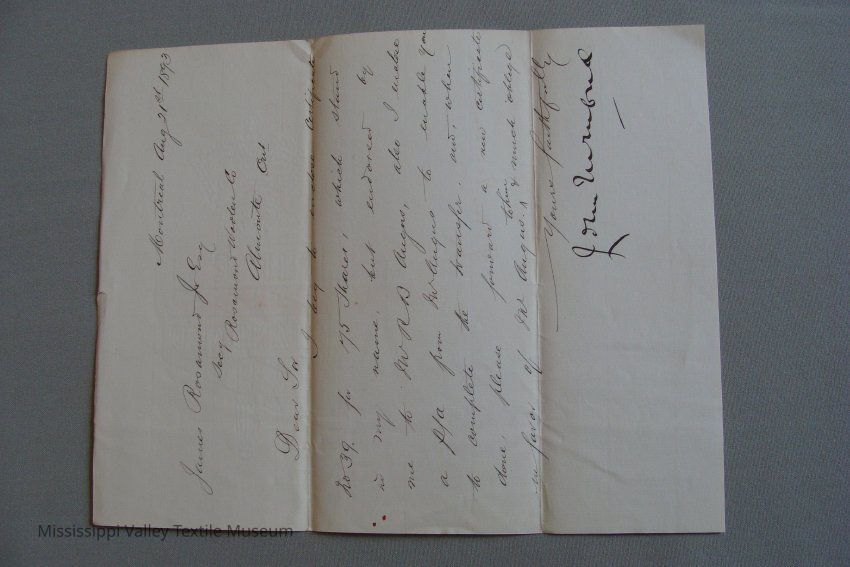 Montreal Aug 21st 1893
James Rosamond Jr Esq
Secy Rosamond Woolen Co
Almonte Ont
Dear Sir
I beg to enclose certificate
No 39 for 75 shares, which stand
in my name, but endorsed by
me to Mr R B Angus, also I enclose
a P/a from Mr Angus to enable you
to complete the transfer, and, when
done, please forward a new certificate
in favor of Mr Angus. & much oblige
Yours faithfully
John
Mississippi Valley Textile Museum